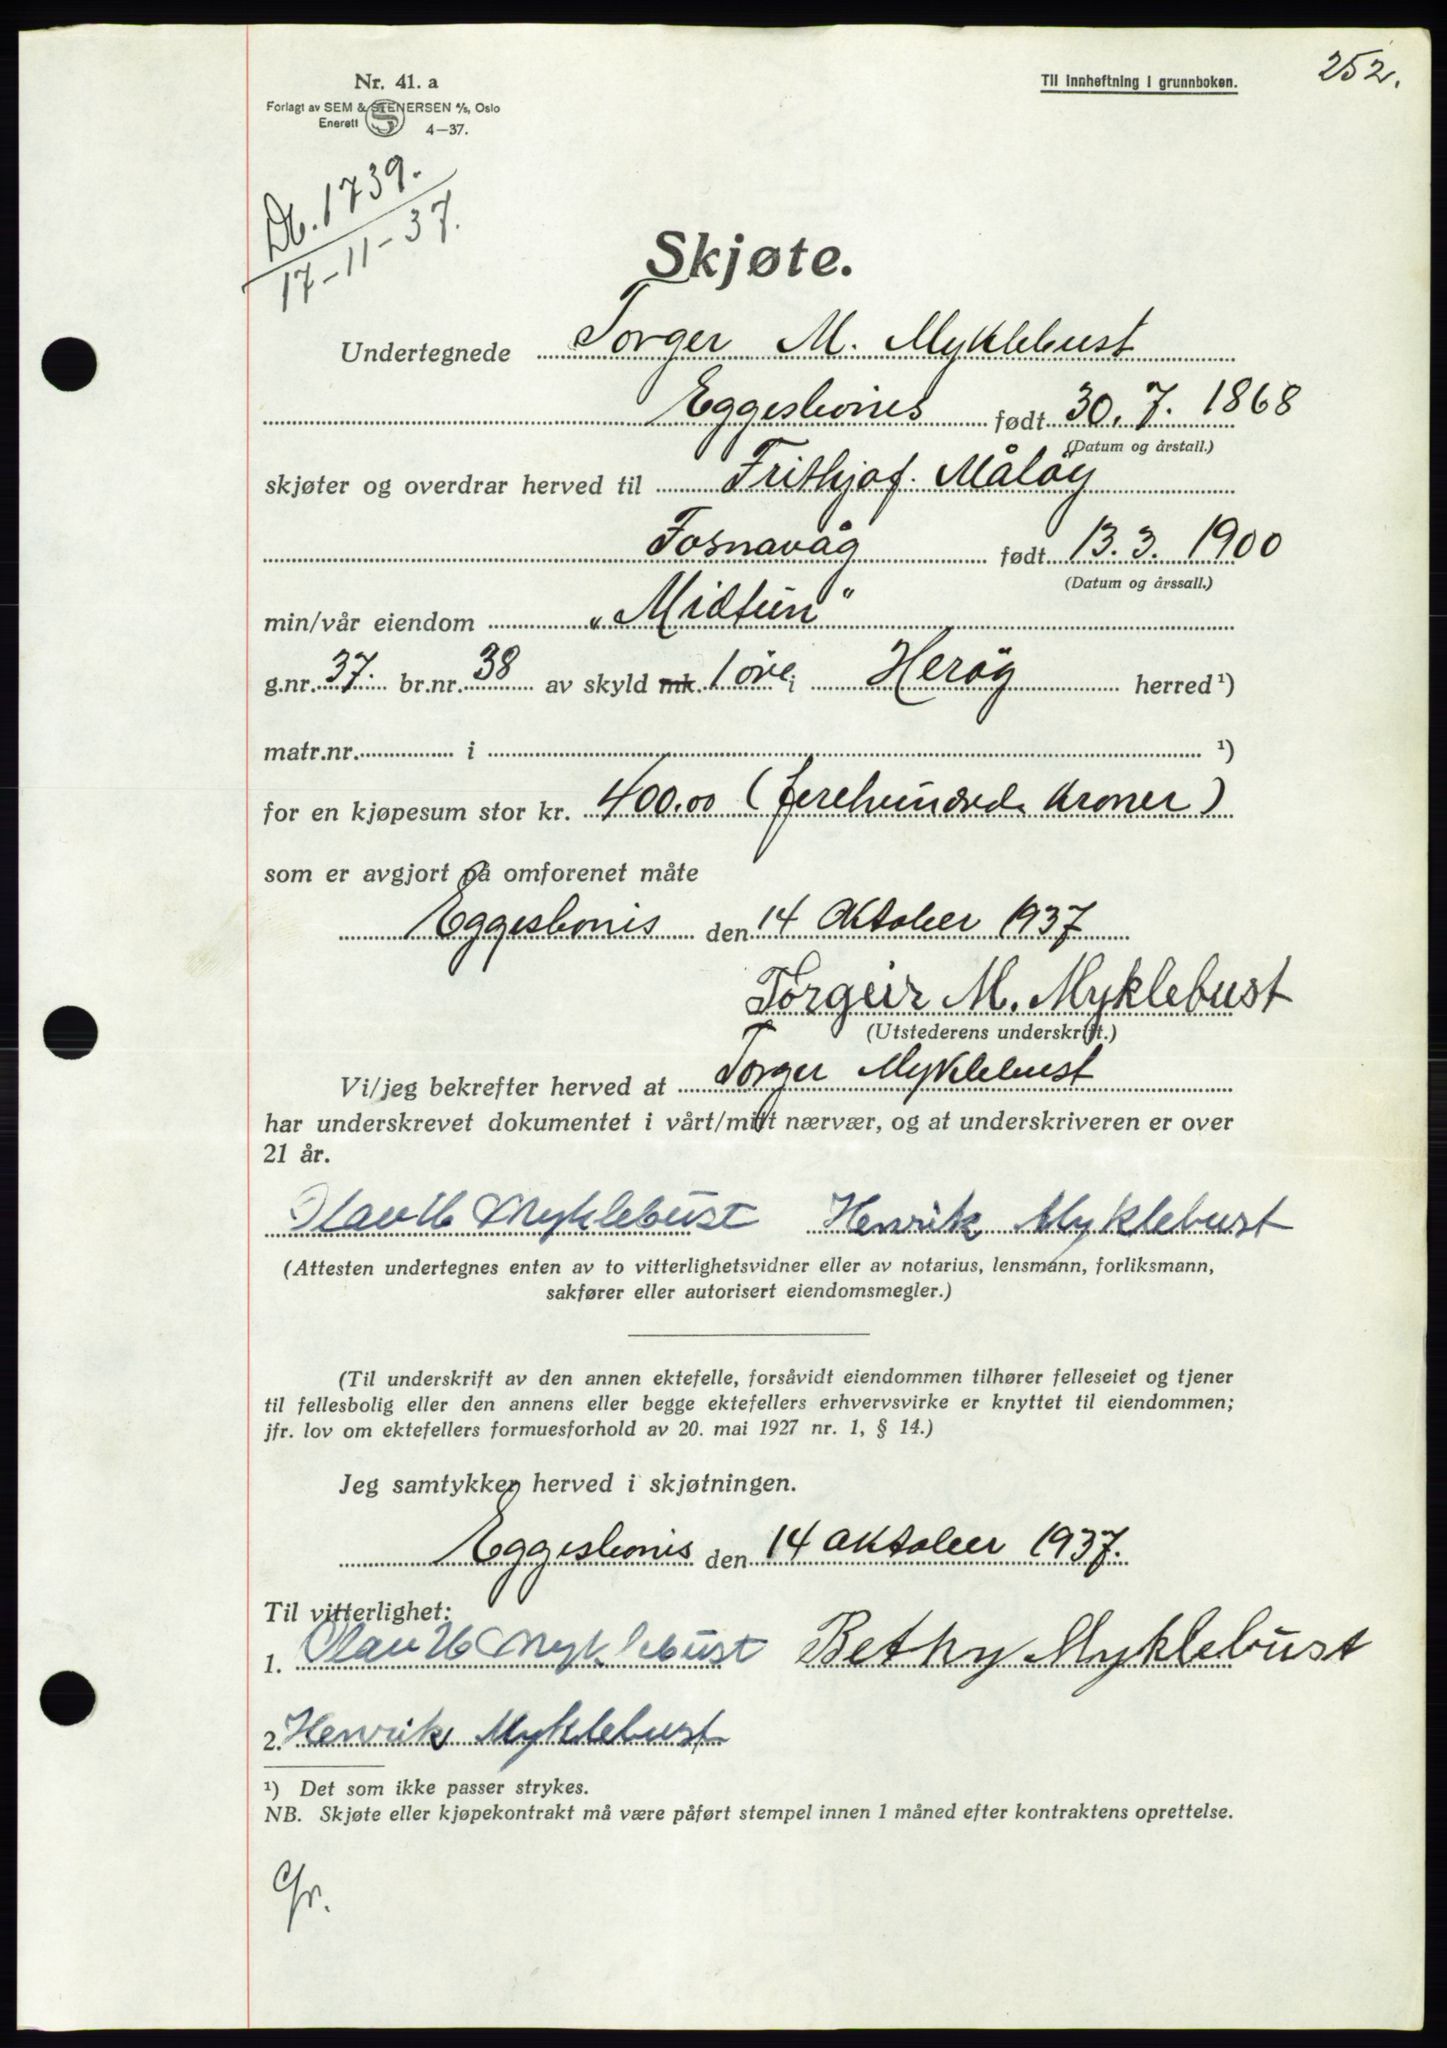 252.
Nr. 41. a
Til innheftning i grunnboken.
Forlagt av SEM & STENERSEN A/S, Oslo
Enerett 4—37.
Db. 1739.
17-11-37.
Skjøte.
Undertegnede Torger M. Myklebust
Eggesbønes født 30. 7. 1868
(Datum og årstall.)
skjøter og overdrar herved til Frithjof Måløy
Fosnavåg født 13. 3. 1900
(Datum og årssall.)
min/vår eiendom „Midtun"
g.nr. 37. br.nr. 38 av skyld mk. 1 øre i Herøy herred ¹)
matr.nr. i ¹)
for en kjøpesum stor kr. 400.00 (firehundrede kroner)
som er avgjort på omforenet måte
Eggesbønes den 14 Oktober 1937
Torgeir M. Myklebust
(Utstederens underskrift.)
Vi/jeg bekrefter herved at Torger Myklebust
har underskrevet dokumentet i vårt/mitt nærvær, og at underskriveren er over
21 år.
Olav H Myklebust Henrik Myklebust
(Attesten undertegnes enten av to vitterlighetsvidner eller av notarius, lensmann, forliksmann,
sakfører eller autorisert eiendomsmegler.)
(Til underskrift av den annen ektefelle, forsåvidt eiendommen tilhører felleseiet og tjener
til fellesbolig eller den annens eller begge ektefellers erhvervsvirke er knyttet til eiendommen;
jfr. lov om ektefellers formuesforhold av 20. mai 1927 nr. 1, § 14.)
Jeg samtykker herved i skjøtningen.
Eggesbønes den 14 oktober 1937.
Til vitterlighet:
1. Olav H Myklebust Bethy Myklebust
2. Henrik Myklebust
¹) Det som ikke passer strykes.
NB. Skjøte eller kjøpekontrakt må være påført stempel innen 1 måned efter kontraktens oprettelse.
Gr.